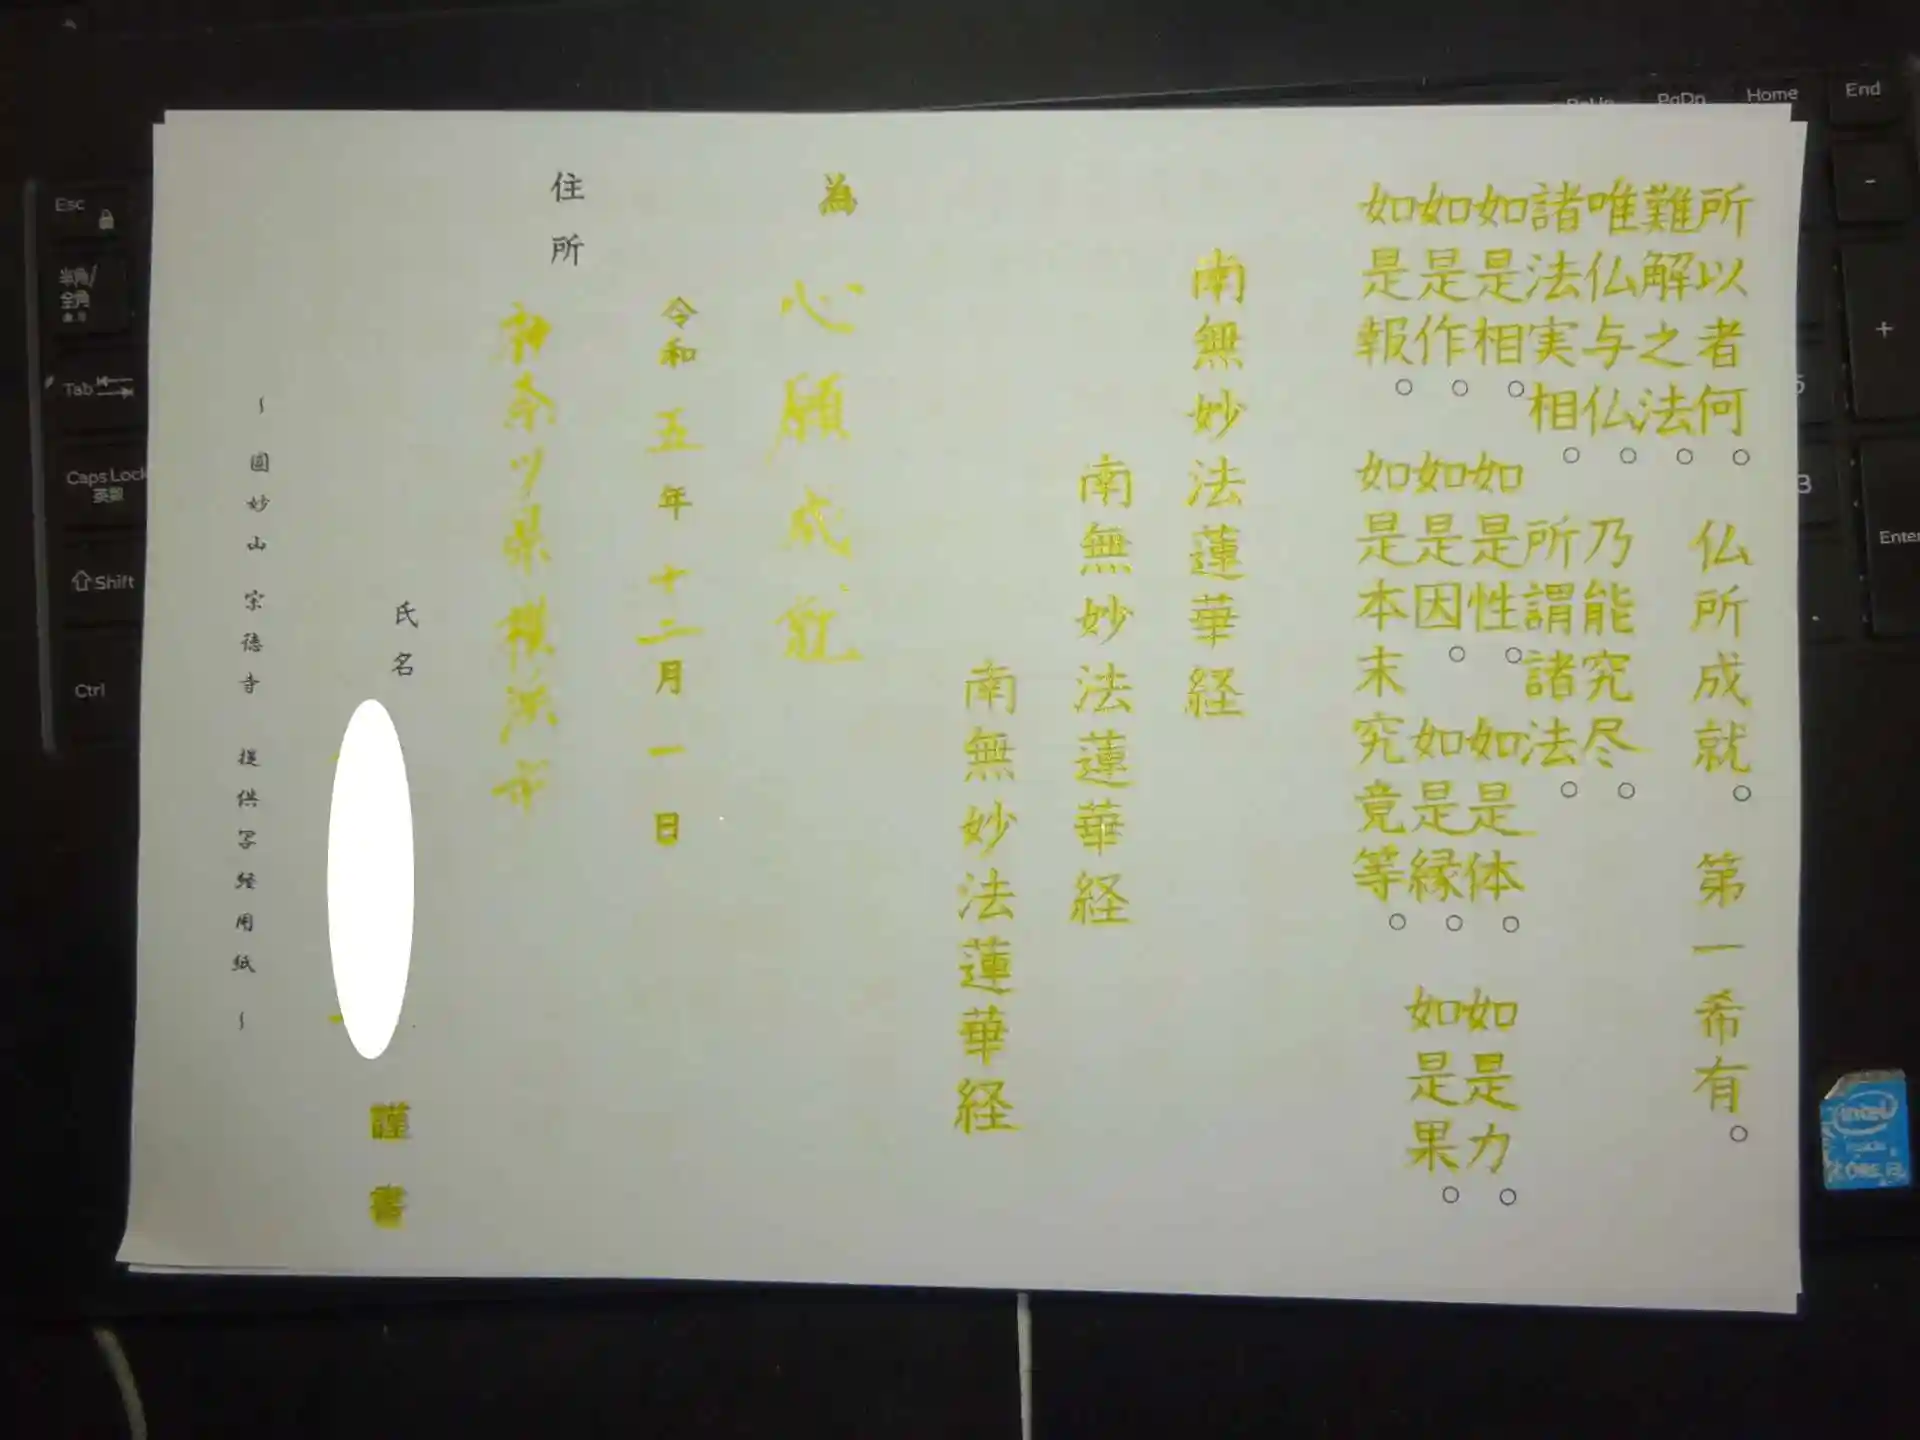 所以者何。仏所成就。第一希有。
難解之法。
唯仏与仏。乃能究尽。
諸法実相。所謂諸法。
如是相。如是性。如是体。如是力。
如是作。如是因。如是縁。如是果。
如是報。如是本末究竟等。
南無妙法蓮華経
南無妙法蓮華経
南無妙法蓮華経
為 心願成就
令和 五年 十二月 一日
住所
神奈川県横浜市
氏名
謹書
~圓妙山 宗徳寺 提供写経用紙~
Esc
半角/全角
Tab
Caps Lock
英数
Shift
Ctrl
PgDn
Home
End
-
+
Enter
3
intel
inside
CORE i3